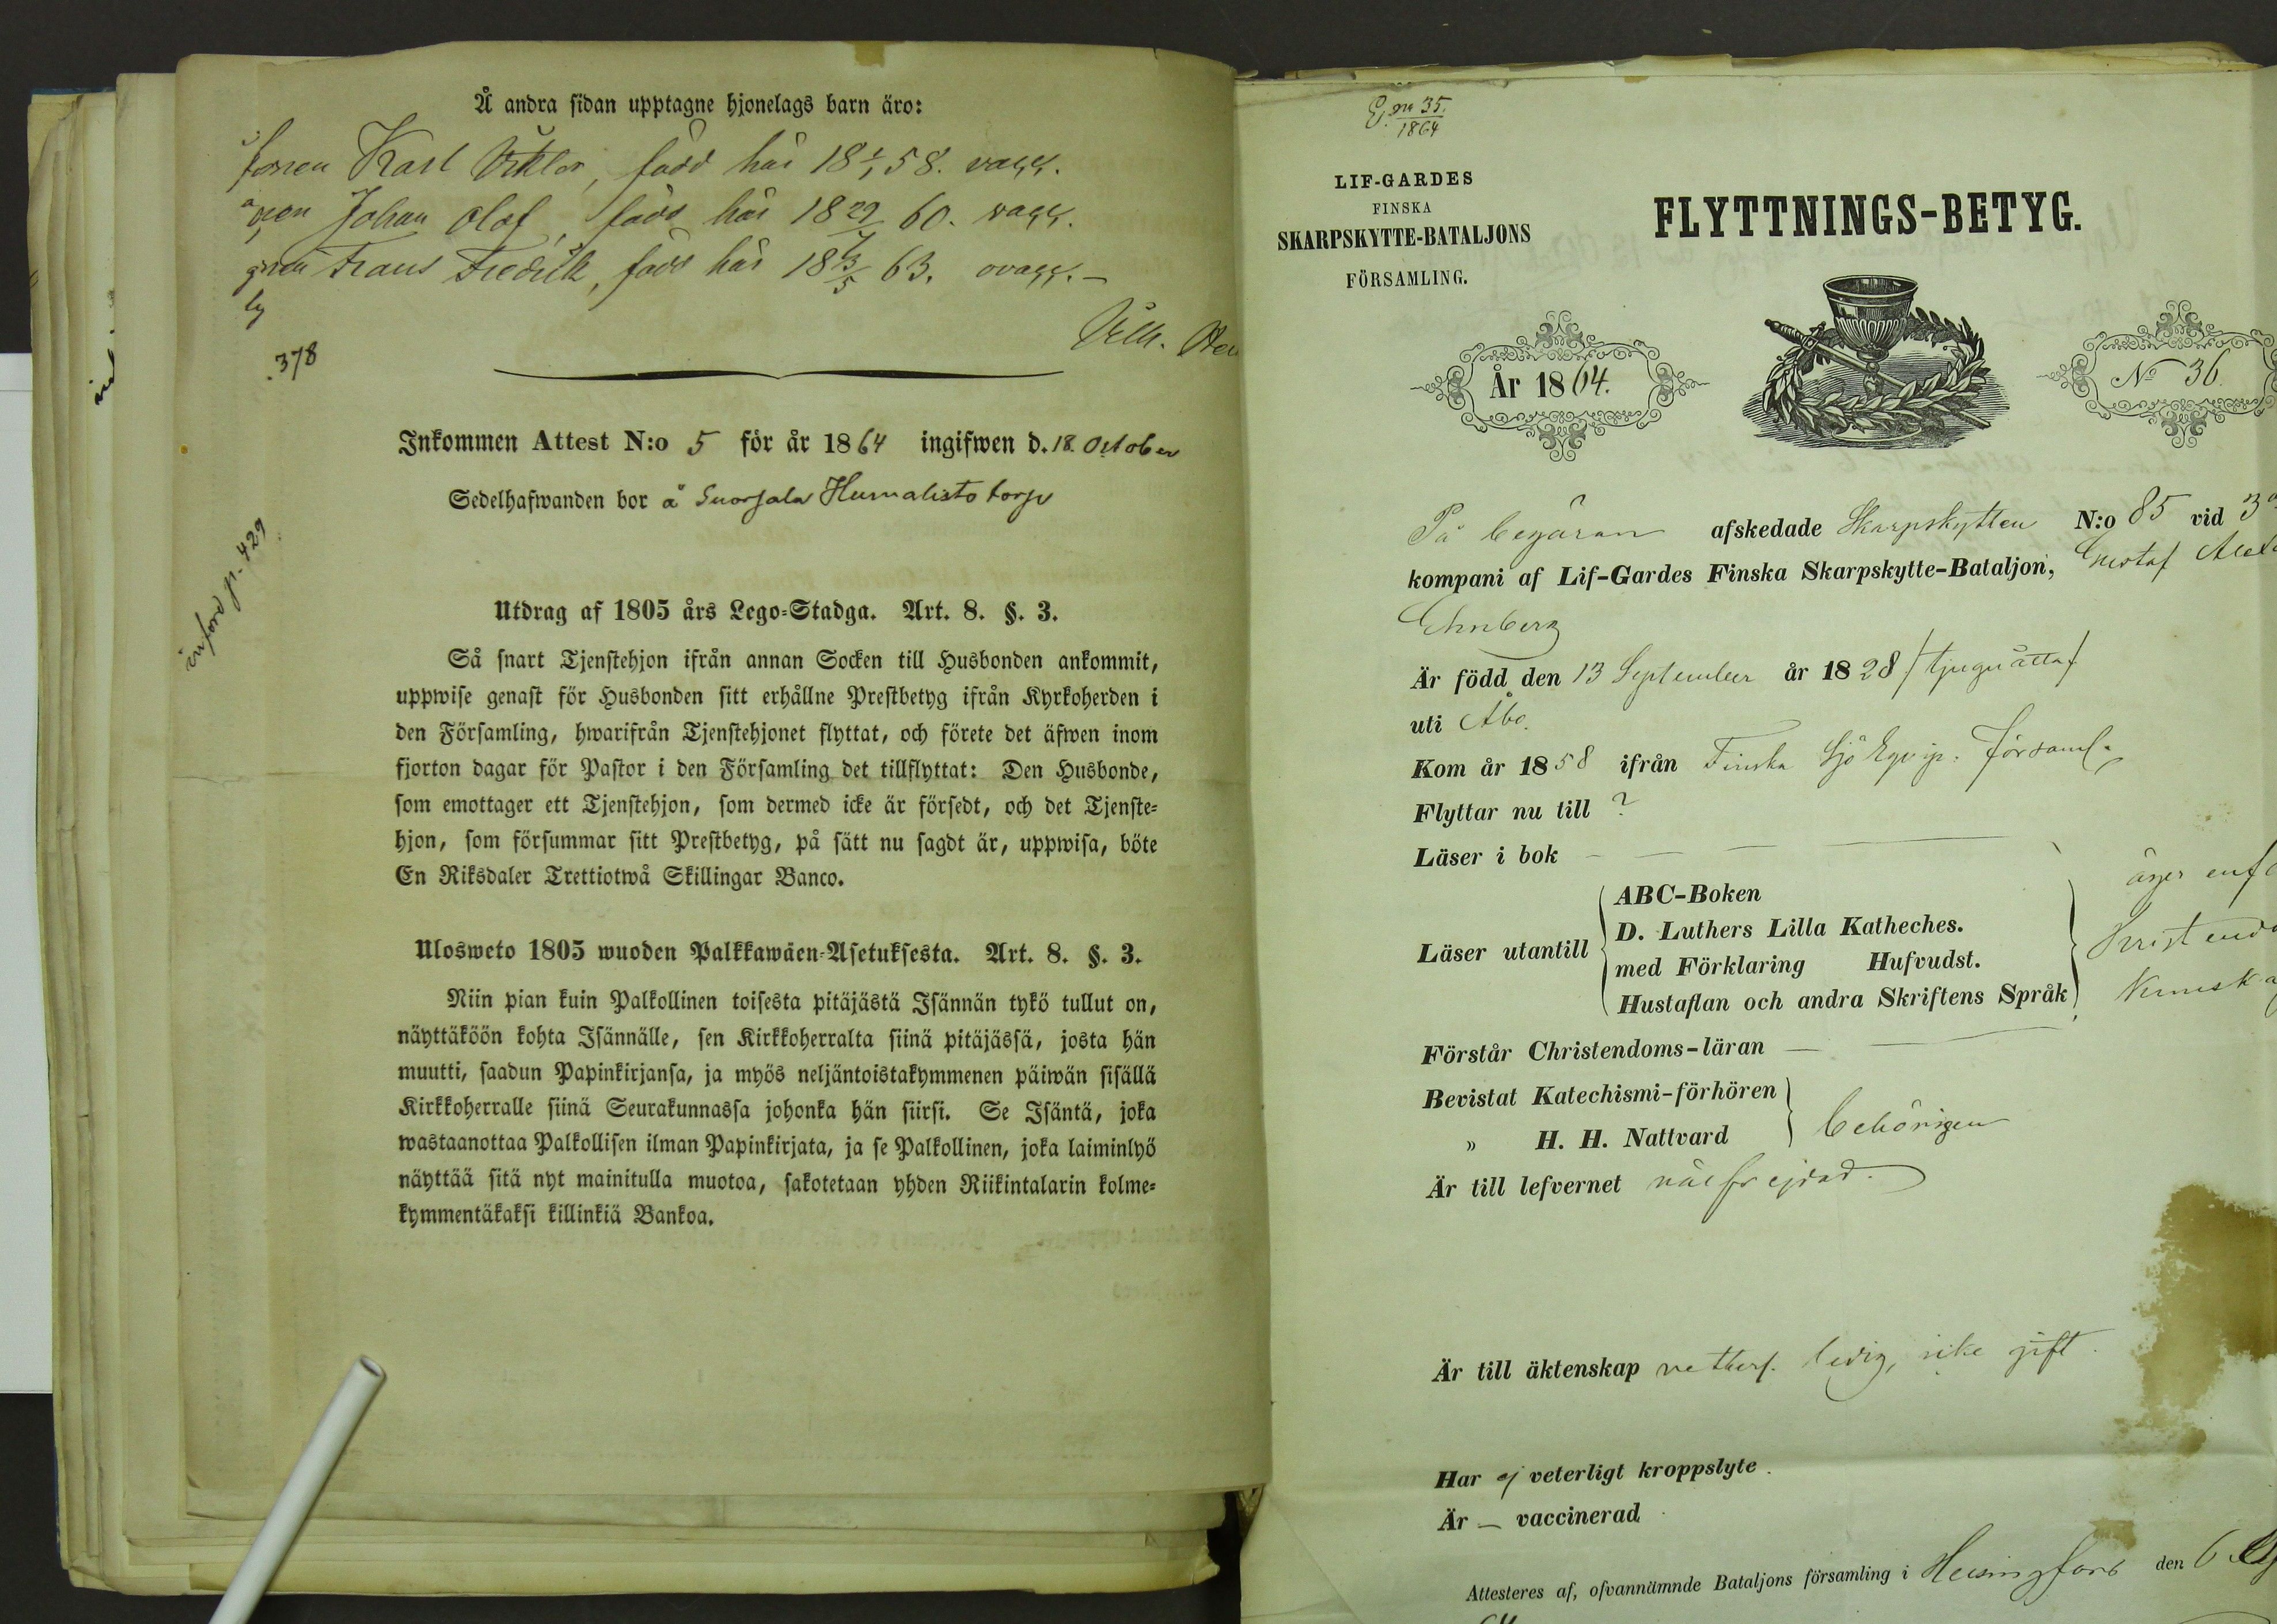 Å andra sidan upptagne hjonelags barn äro:
sonen Karl Viktor, född här 18 58. vacc.
Johan Olof, född här 18 29 60. vacc.
Frans Fredrik, född här 18 3/5 63. ovacc. –
Vilh.
378
Inkommen Attest N:o 5 för år 1864 ingifwen d. 18. October
Sedelhafwanden bor å Suorsala Humalisto torp
införd p. 429
Utdrag af 1805 års Lego-Stadga. Art. 8. §. 3.
Så snart Tjenstehjon ifrån annan Socken till Husbonden ankommit,
uppwise genast för Husbonden sitt erhållne Prestbetyg ifrån Kyrkoherden i
den Församling, hwarifrån Tjenstehjonet flyttat, och förete det äfwen inom
fjorton dagar för Pastor i den Församling det tillflyttat: Den Husbonde,
som emottager ett Tjenstehjon, som dermed icke är försedt, och det Tjenste-
hjon, som försummar sitt Prestbetyg, på sätt nu sagdt är, uppwisa, böte
En Riksdaler Trettiotwå Skillingar Banco.
Ulosweto 1805 wuoden Palkkawäen-Asetuksesta. Art. 8. §. 3.
Niin pian kuin Palkollinen toisesta pitäjästä Isännän tykö tullut on,
näyttäköön kohta Isännälle, sen Kirkkoherralta siinä pitäjässä, josta hän
muutti, saadun Papinkirjansa, ja myös neljäntoistakymmenen päiwän sisällä
Kirkkoherralle siinä Seurakunnassa johonka hän siirsi. Se Isäntä, joka
wastaanottaa Palkollisen ilman Papinkirjata, ja se Palkollinen, joka laiminlyö
näyttää sitä nyt mainitulla muotoa, sakotetaan yhden Riikintalarin kolme-
kymmentäkaksi killinkiä Bankoa.
35.
1864
LIF-GARDES
FINSKA
SKARPSKYTTE-BATALJONS
FÖRSAMLING.
FLYTTNINGS-BETYG.
År 1864.
No 36.
På begäran afskedade Skarpskytten N:o 85 vid 3
kompani af Lif-Gardes Finska Skarpskytte-Bataljon, Gustaf
Ehnberg
Är född den 13 September år 1828 /tjuguåtta/
uti Åbo.
Kom år 1858 ifrån Finska Sjö Eqvip. Församl.
Flyttar nu till ?
Läser i bok
Läser utantill
ABC-Boken
D. Luthers Lilla Katheches.
med Förklaring Hufvudst.
Hustaflan och andra Skriftens Språk
äger
Förstår Christendoms-läran
Bevistat Katechismi-förhören
" H. H. Nattvard
behörigen
Är till lefvernet välfrejdad.
Är till äktenskap ledig, icke gift.
Har ej veterligt kroppslyte.
Är – vaccinerad
Attesteres af, ofvannämnde Bataljons församling i Helsingfors den 6